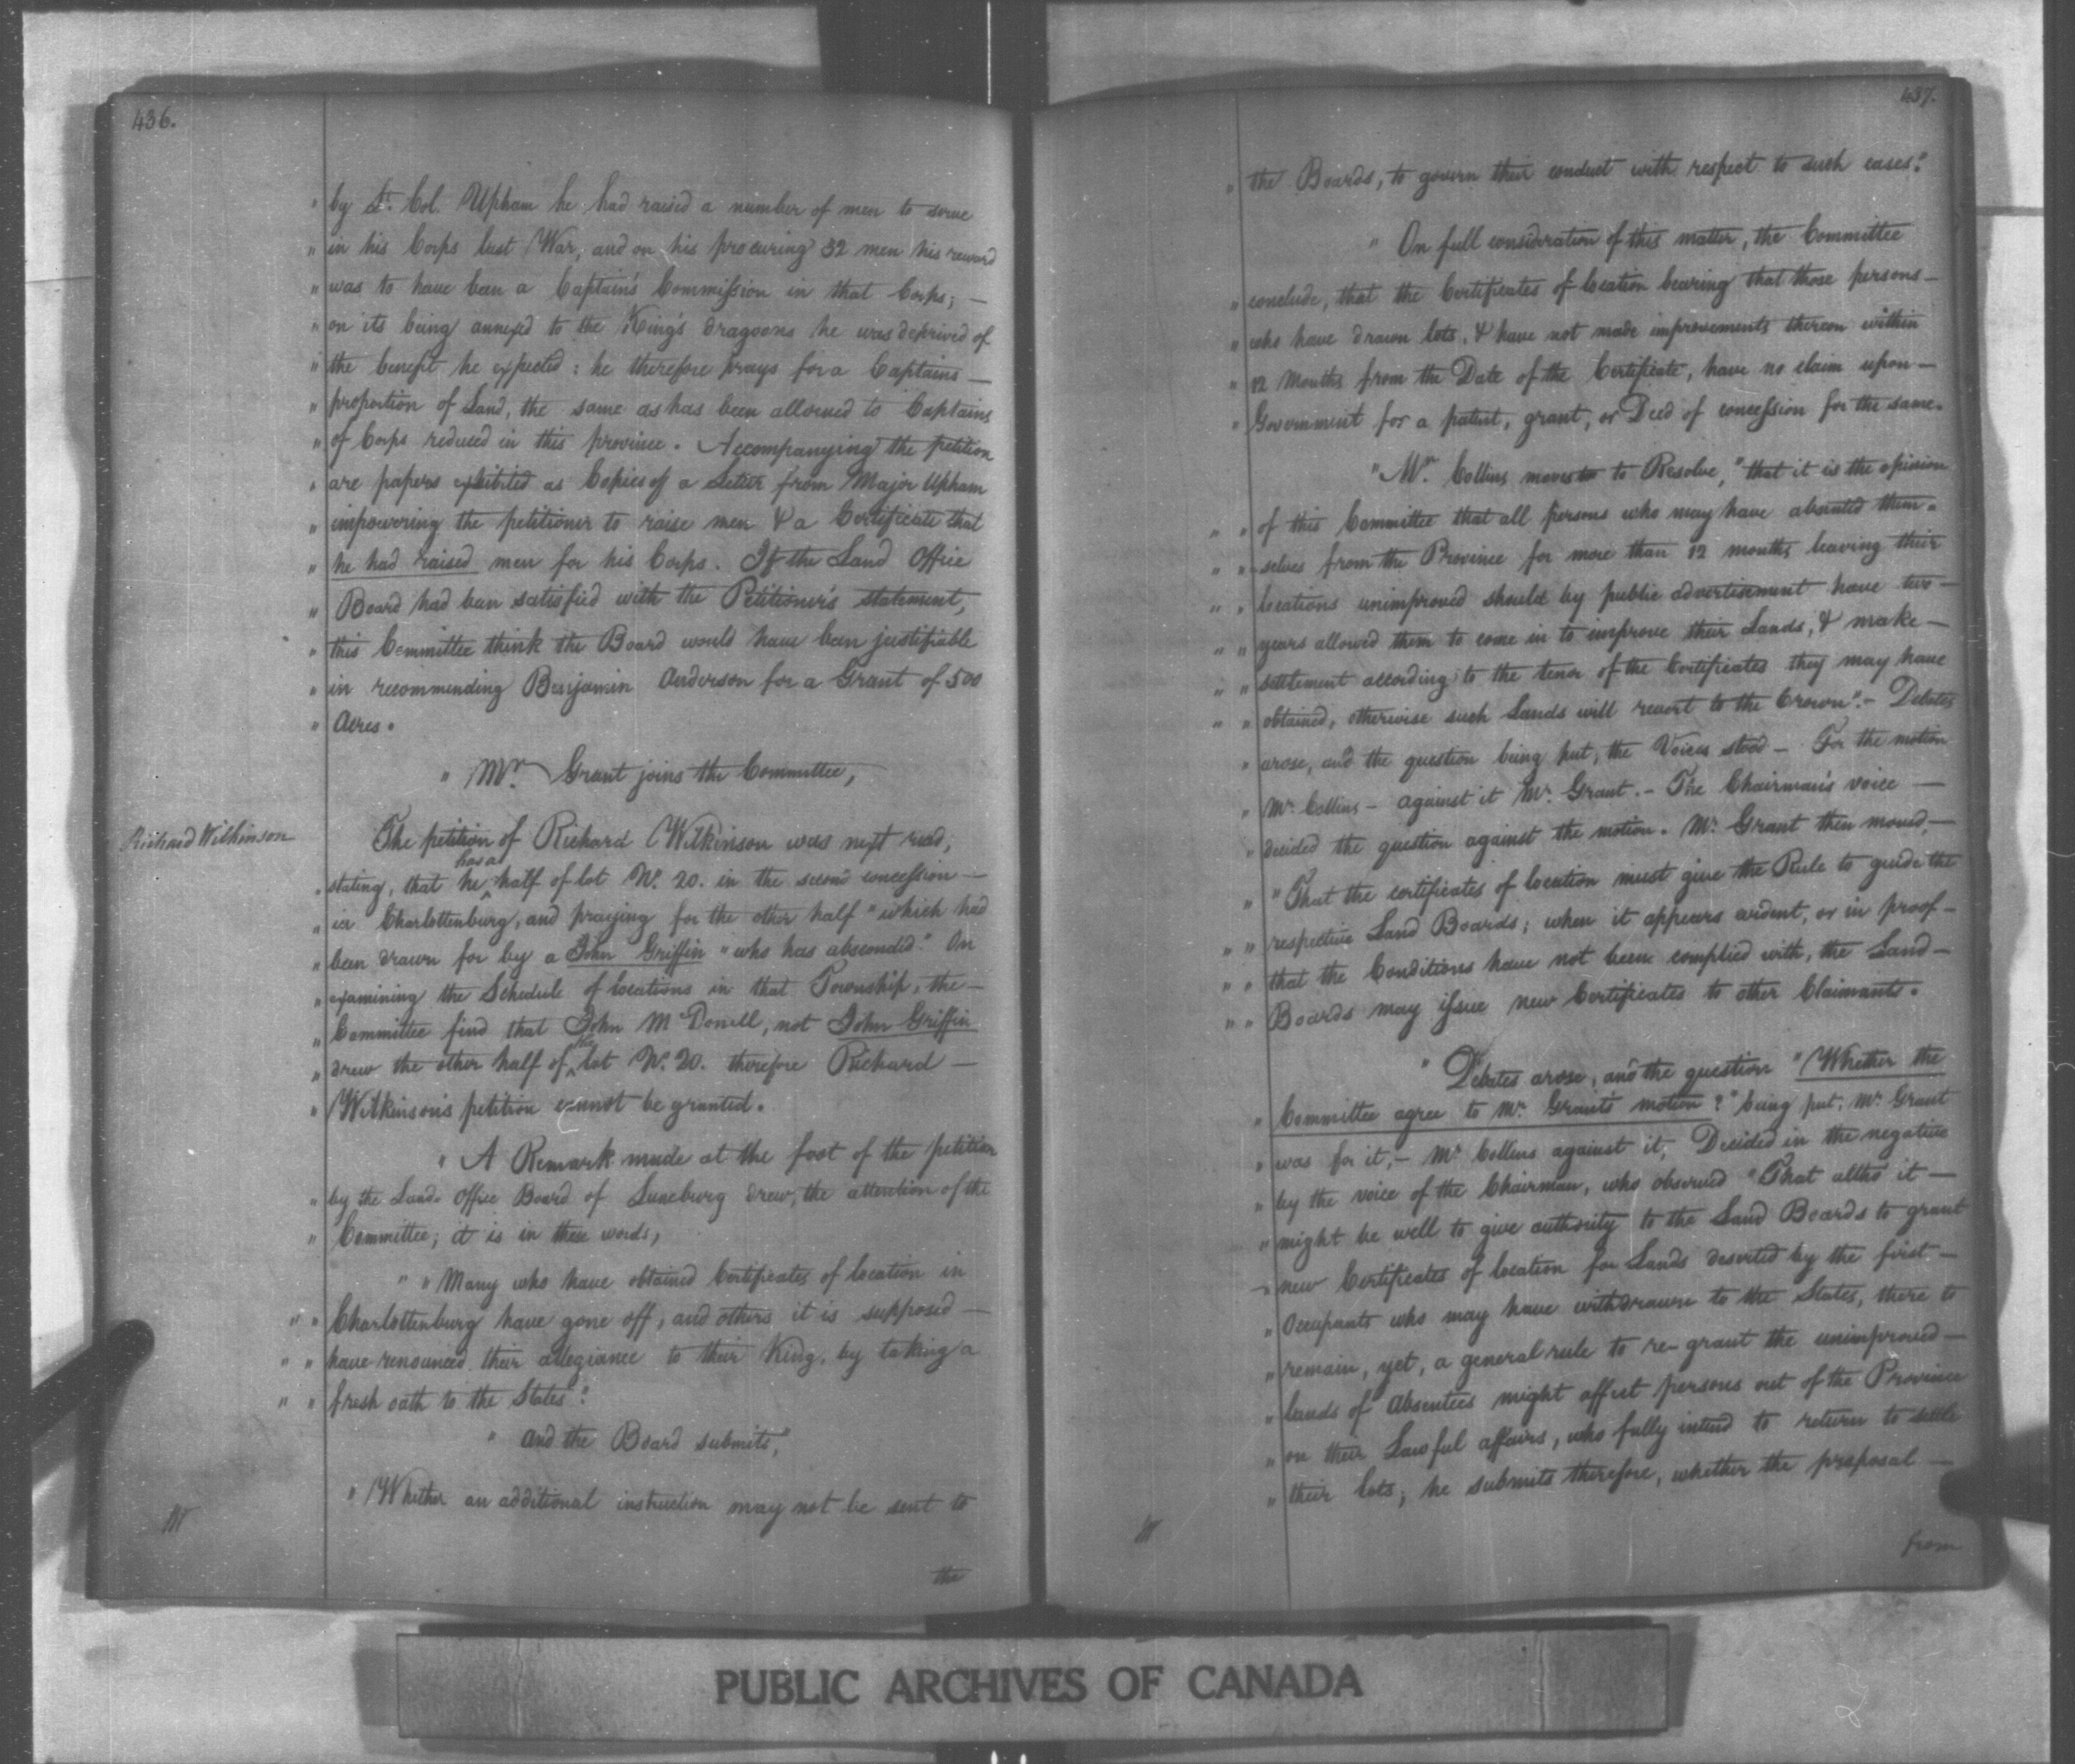 436.
" by Lt. Col. Upham he had raised a number of men to serve
" in his Corps last War, and on his procuring 32 men his reward
" was to have been a Captain's Commission in that Corps; —
" on its being annexed to the King's dragoons he was deprived of
" the benefit he expected: he therefore prays for a Captains —
" proportion of Land, the same as has been allowed to Captains
" of Corps reduced in this province. Accompanying the petition
" are papers exhibited as Copies of a Letter from Major Upham
" impowering the petitioner to raise men & a Certificate that
" he had raised men for his Corps. If the Land Office
" Board had been satisfied with the Petitioner's statement,
" this Committee think the Board would have been justifiable
" in recommending Benjamin Anderson for a Grant of 500
" Acres.
" Mr. Grant joins the Committee,
Richard Wilkinson
The petition of Richard Wilkinson was next read,
has a
" stating, that he ^ half of lot No. 20. in the second concession —
" in Charlottenburg, and praying for the other half "which had
" been drawn for by a John Griffin "who has absconded." On
" examining the Schedule of locations in that Township, the —
" Committee find that John McDonell, not John Griffin
the
" drew the other half of ^ lot No. 20. therefore Richard —
" Wilkinson's petition cannot be granted.
" A Remark made at the foot of the petition
" by the Land Office Board of Luneburg drew, the attention of the
" Committee; it is in these words,
" " Many who have obtained Certificates of location in
" " Charlottenburg have gone off, and others it is supposed —
" " have renounced their allegiance to their King, by taking a
" " fresh oath to the States".
" and the Board submits,"
" Whether an additional instruction may not be sent to
the
437.
" the Boards, to govern their conduct with respect to such cases."
" On full consideration of this matter, the Committee
" conclude, that the Certificates of location bearing that those persons —
" who have drawn lots, & have not made improvements thereon within
" 12 Months from the Date of the Certificate, have no claim upon —
" Government for a patent, grant, or Deed of concession for the same.
" Mr. Collins moves to Resolve, "that it is the opinion
" " of this Committee that all persons who may have absented them-
" " -selves from the Province for more than 12 months leaving their
" " locations unimproved should by public advertisement have two —
" " years allowed them to come in to improve their Lands, & make —
" " settlement according to the tenor of the Certificates they may have
" " obtained, otherwise such Lands will revert to the Crown". - Debates
" arose, and the question being put, the Voices stood — For the motion
" Mr. Collins — against it Mr. Grant. - The Chairman's voice —
" decided the question against the motion. Mr. Grant then moved, —
" " That the certificates of location must give the Rule to guide the
" " respective Land Boards; when it appears evident, or in proof —
" " that the Conditions have not been complied with, the Land —
" " Boards may issue new Certificates to other Claimants.
" Debates arose, and the question "Whether the
" Committee agree to Mr. Grant's motion?" being put, Mr. Grant
" was for it, — Mr Collins against it, Decided in the negative
" by the voice of the Chairman, who observed "That altho' it —
" might be well to give authority to the Land Boards to grant
" new Certificates of location for Lands deserted by the first —
" Occupants who may have withdrawn to the States, there to
" remain, yet, a general rule to re-grant the unimproved —
" lands of Absentees might affect persons out of the Province
" on their Lawful affairs, who fully intend to return to settle
" their lots; he submits therefore, whether the proposal —
from
PUBLIC ARCHIVES OF CANADA